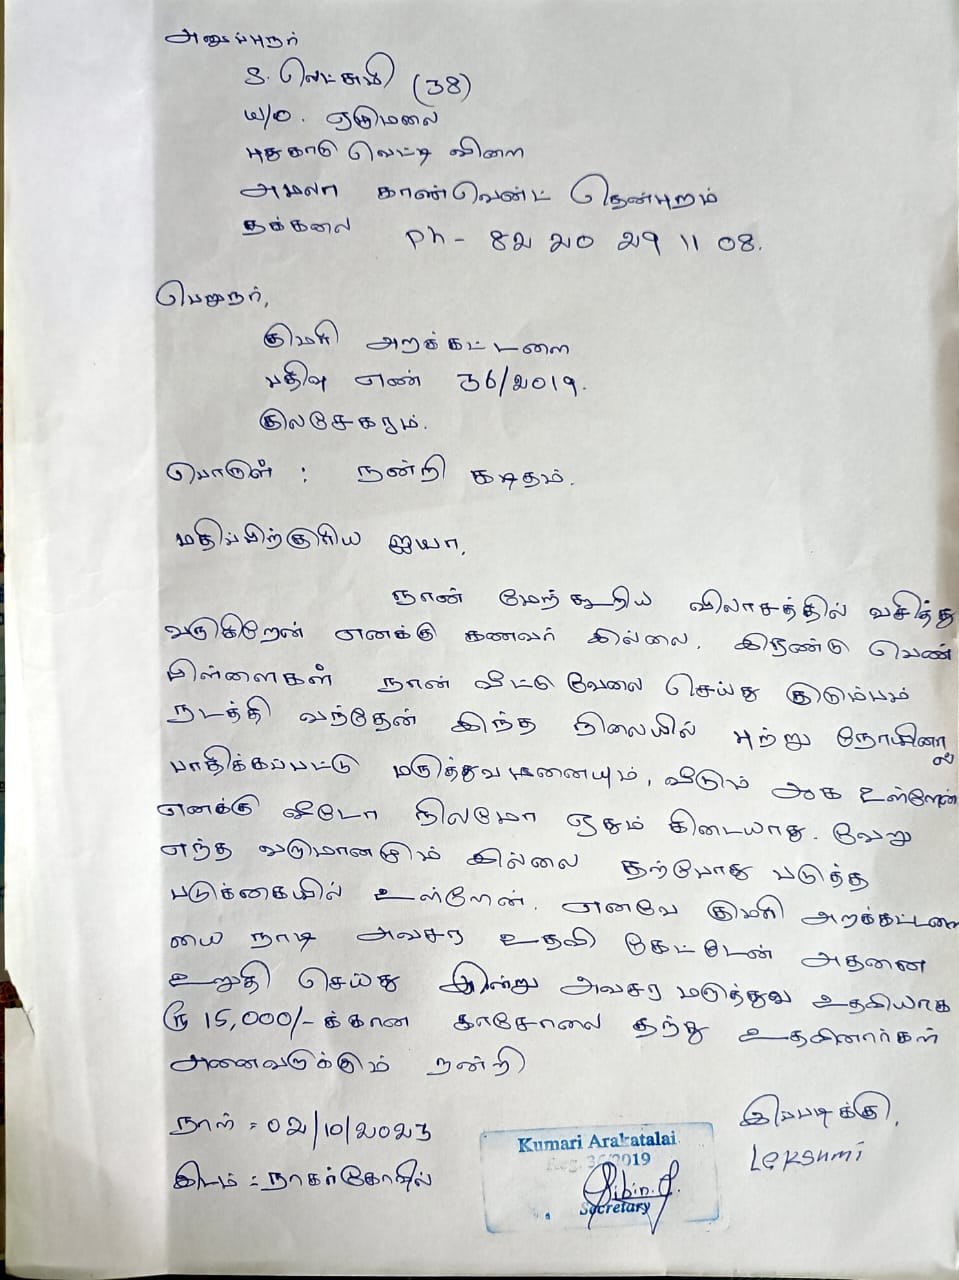 அனுப்புநர்
S. லெட்சுமி (38)
W/O. ஏழுமலை
புதுகாடு வெட்டி விளை
அமலா காண்வெண்ட் தென்புறம்
தக்கலை Ph - 82 20 29 11 08.
பெறுநர்,
குமரி அறக்கட்டளை
பதிவு எண் 36/2019.
குலசேகரம்.
பொருள் : நன்றி கடிதம்.
மதிப்பிற்குரிய ஐயா,
நான் மேற்கூறிய விலாசத்தில் வசித்து
வருகிறேன் எனக்கு கணவர் இல்லை. இரண்டு பெண்
பிள்ளைகள் நான் வீட்டு வேலை செய்து குடும்பம்
நடத்தி வந்தேன் இந்த நிலையில் புற்று நோயினால்
பாதிக்கப்பட்டு மருத்துவமனையும், வீடும் ஆக உள்ளேன்
எனக்கு வீடோ நிலமோ ஏதும் கிடையாது. வேறு
எந்த வருமானமும் இல்லை தற்போது படுத்த
படுக்கையில் உள்ளேன். எனவே குமரி அறக்கட்டளை
யை நாடி அவசர உதவி கேட்டேன் அதனை
உறுதி செய்து இன்று அவசர மருத்துவ உதவியாக
ரூ 15,000/- க்கான காசோலை தந்து உதவினார்கள்
அனைவருக்கும் நன்றி
நாள் = 02/10/2023
இப்படிக்கு,
Lekshmi
இடம் = நாகர்கோவில்
Kumari Arakatalai
Reg. 36/2019
Sibin.
Secretary